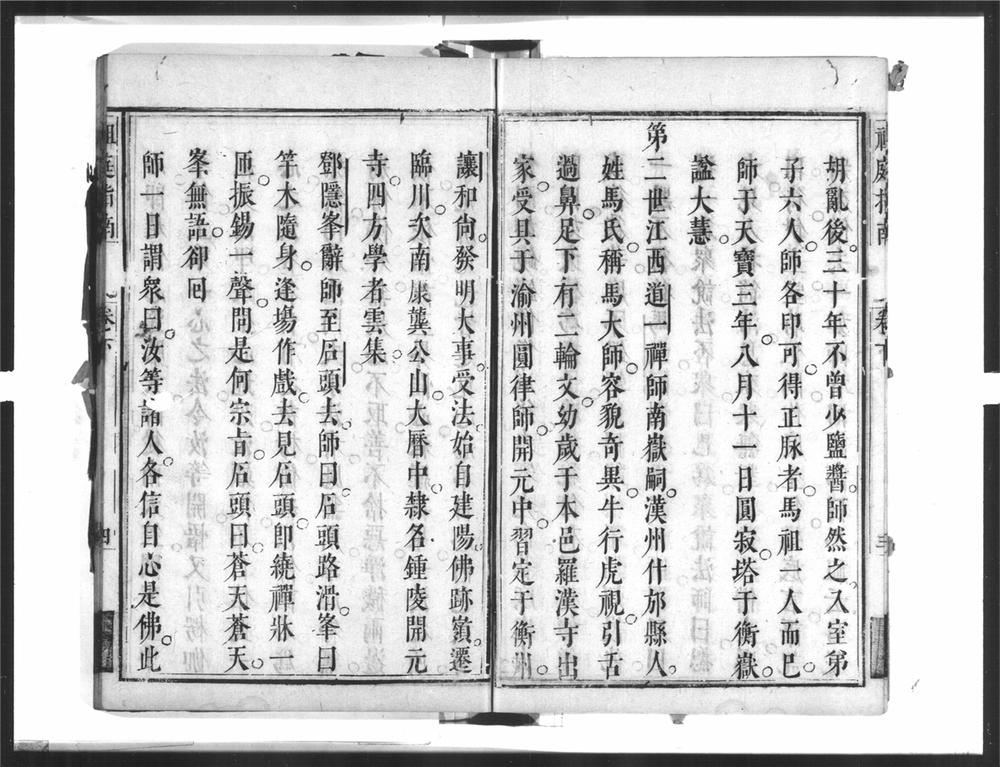 胡亂後三十年不曾少鹽醬師然之入室弟
子六人師各印可得正脉者馬祖一人而巳
師于天寶三年八月十一日圓寂塔于衡嶽
謚大慧
第二世江西道一禪師南嶽嗣漢州什邡縣人
姓馬氏稱馬大師容貌奇異牛行虎視引舌
過鼻足下有二輪文幼歲于本邑羅漢寺出
家受具于渝州圓律師開元中習定于衡州
讓和尚發明大事受法始自建陽佛跡嶺遷
臨川次南康龔公山大曆中隸名鍾陵開元
寺四方學者雲集
鄧隱峯辭師至石頭去師曰石頭路滑峯曰
竿木隨身逢塲作戲去見石頭即繞禪牀一
匝振錫一聲問是何宗旨石頭曰蒼天蒼天
峯無語卻回
師一日謂衆曰汝等諸人各信自心是佛此
祖庭指南
卷下
四